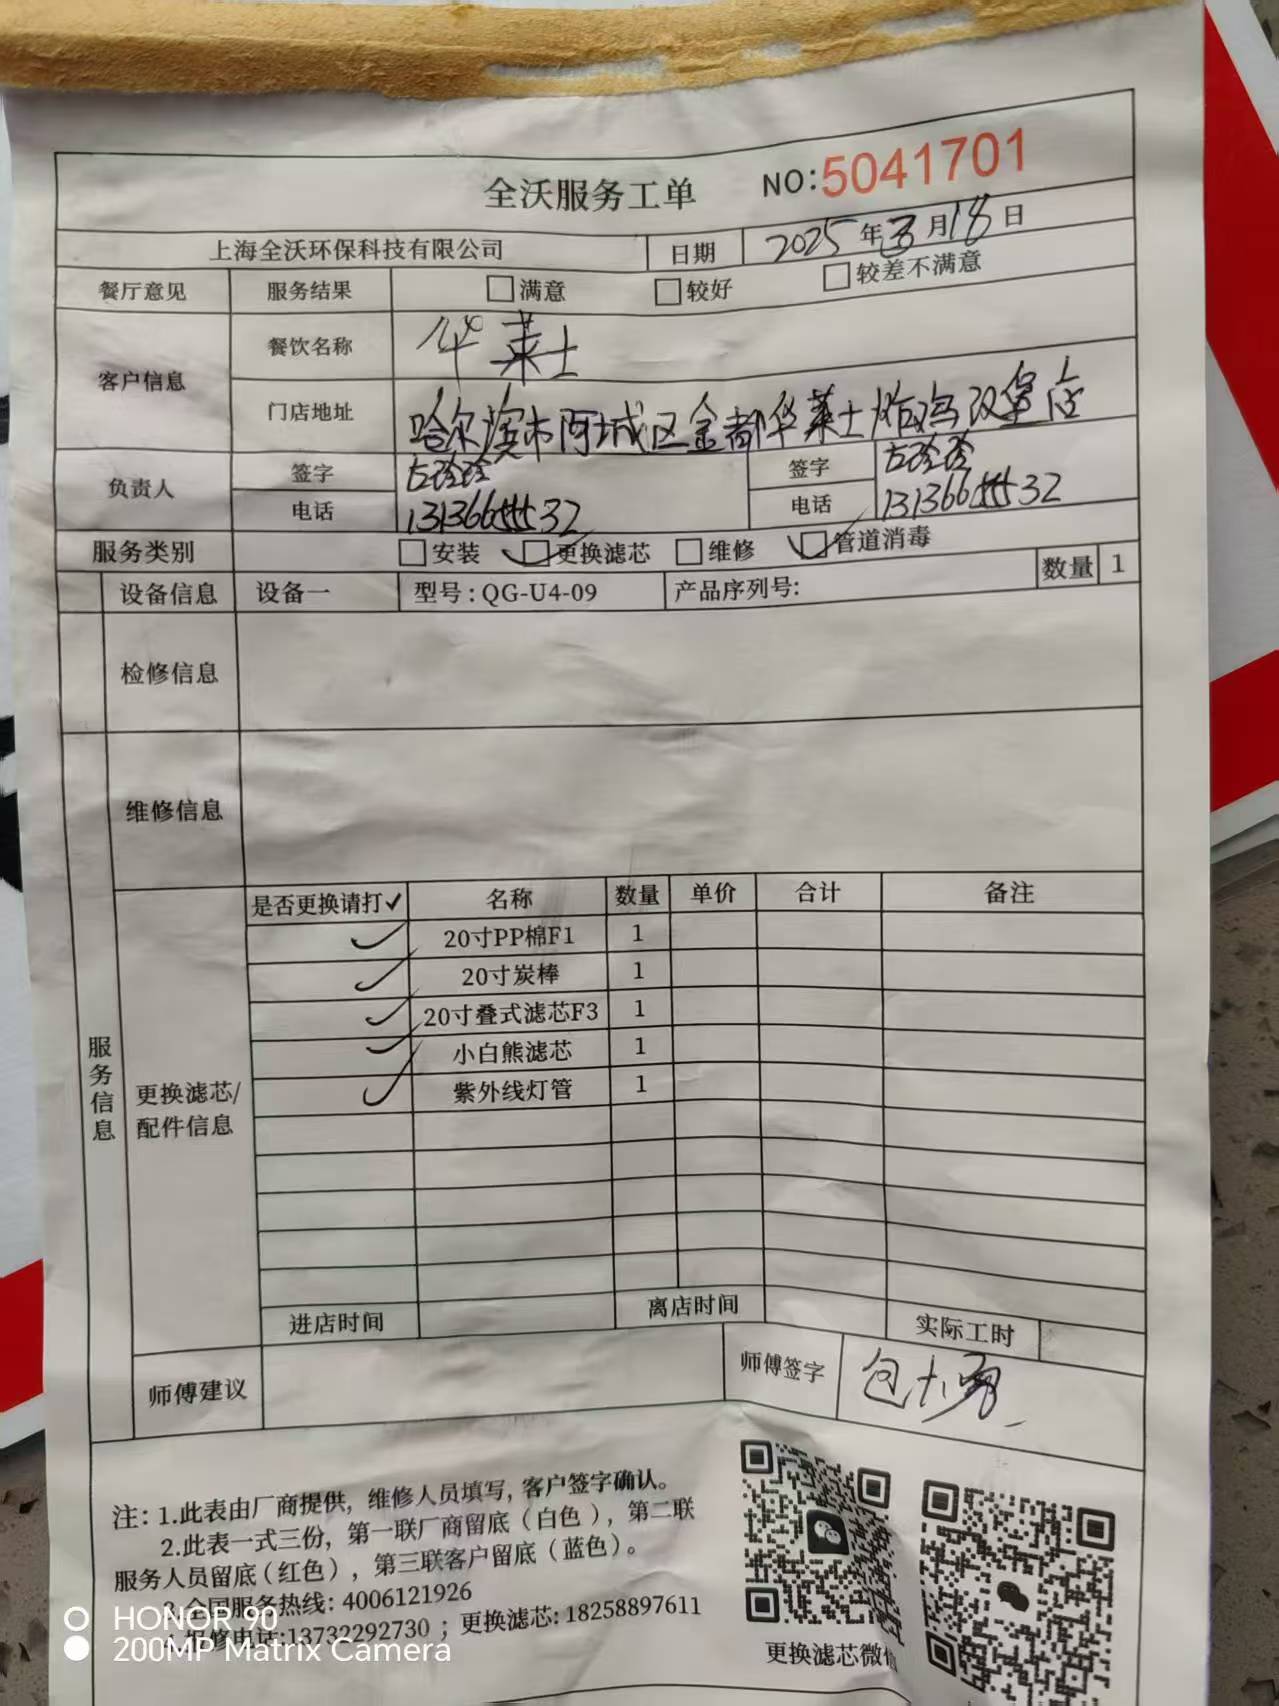 全沃服务工单 NO:5041701
上海全沃环保科技有限公司 日期 2025年3月18日
餐厅意见 服务结果 满意 较好 较差不满意
客户信息 餐饮名称 华莱士
门店地址 哈尔滨市阿城区金都华莱士炸鸡汉堡店
负责人 签字 左玲玲 签字 左玲玲
电话 电话
服务类别 安装 更换滤芯 维修 管道消毒
设备信息 设备一 型号:QG-U4-09 产品序列号: 数量 1
检修信息
维修信息
服务信息
更换滤芯/配件信息
是否更换请打✓ 名称 数量 单价 合计 备注
✓ 20寸PP棉F1 1
✓ 20寸炭棒 1
✓ 20寸叠式滤芯F3 1
✓ 小白熊滤芯 1
✓ 紫外线灯管 1
进店时间 离店时间 实际工时
师傅建议 师傅签字
注:1.此表由厂商提供,维修人员填写,客户签字确认。
2.此表一式三份,第一联厂商留底(白色),第二联
服务人员留底(红色),第三联客户留底(蓝色)。
3.全国服务热线:4006121926
4.报修电话:13732292730;更换滤芯:18258897611
更换滤芯微信
HONOR 90
200MP Matrix Camera